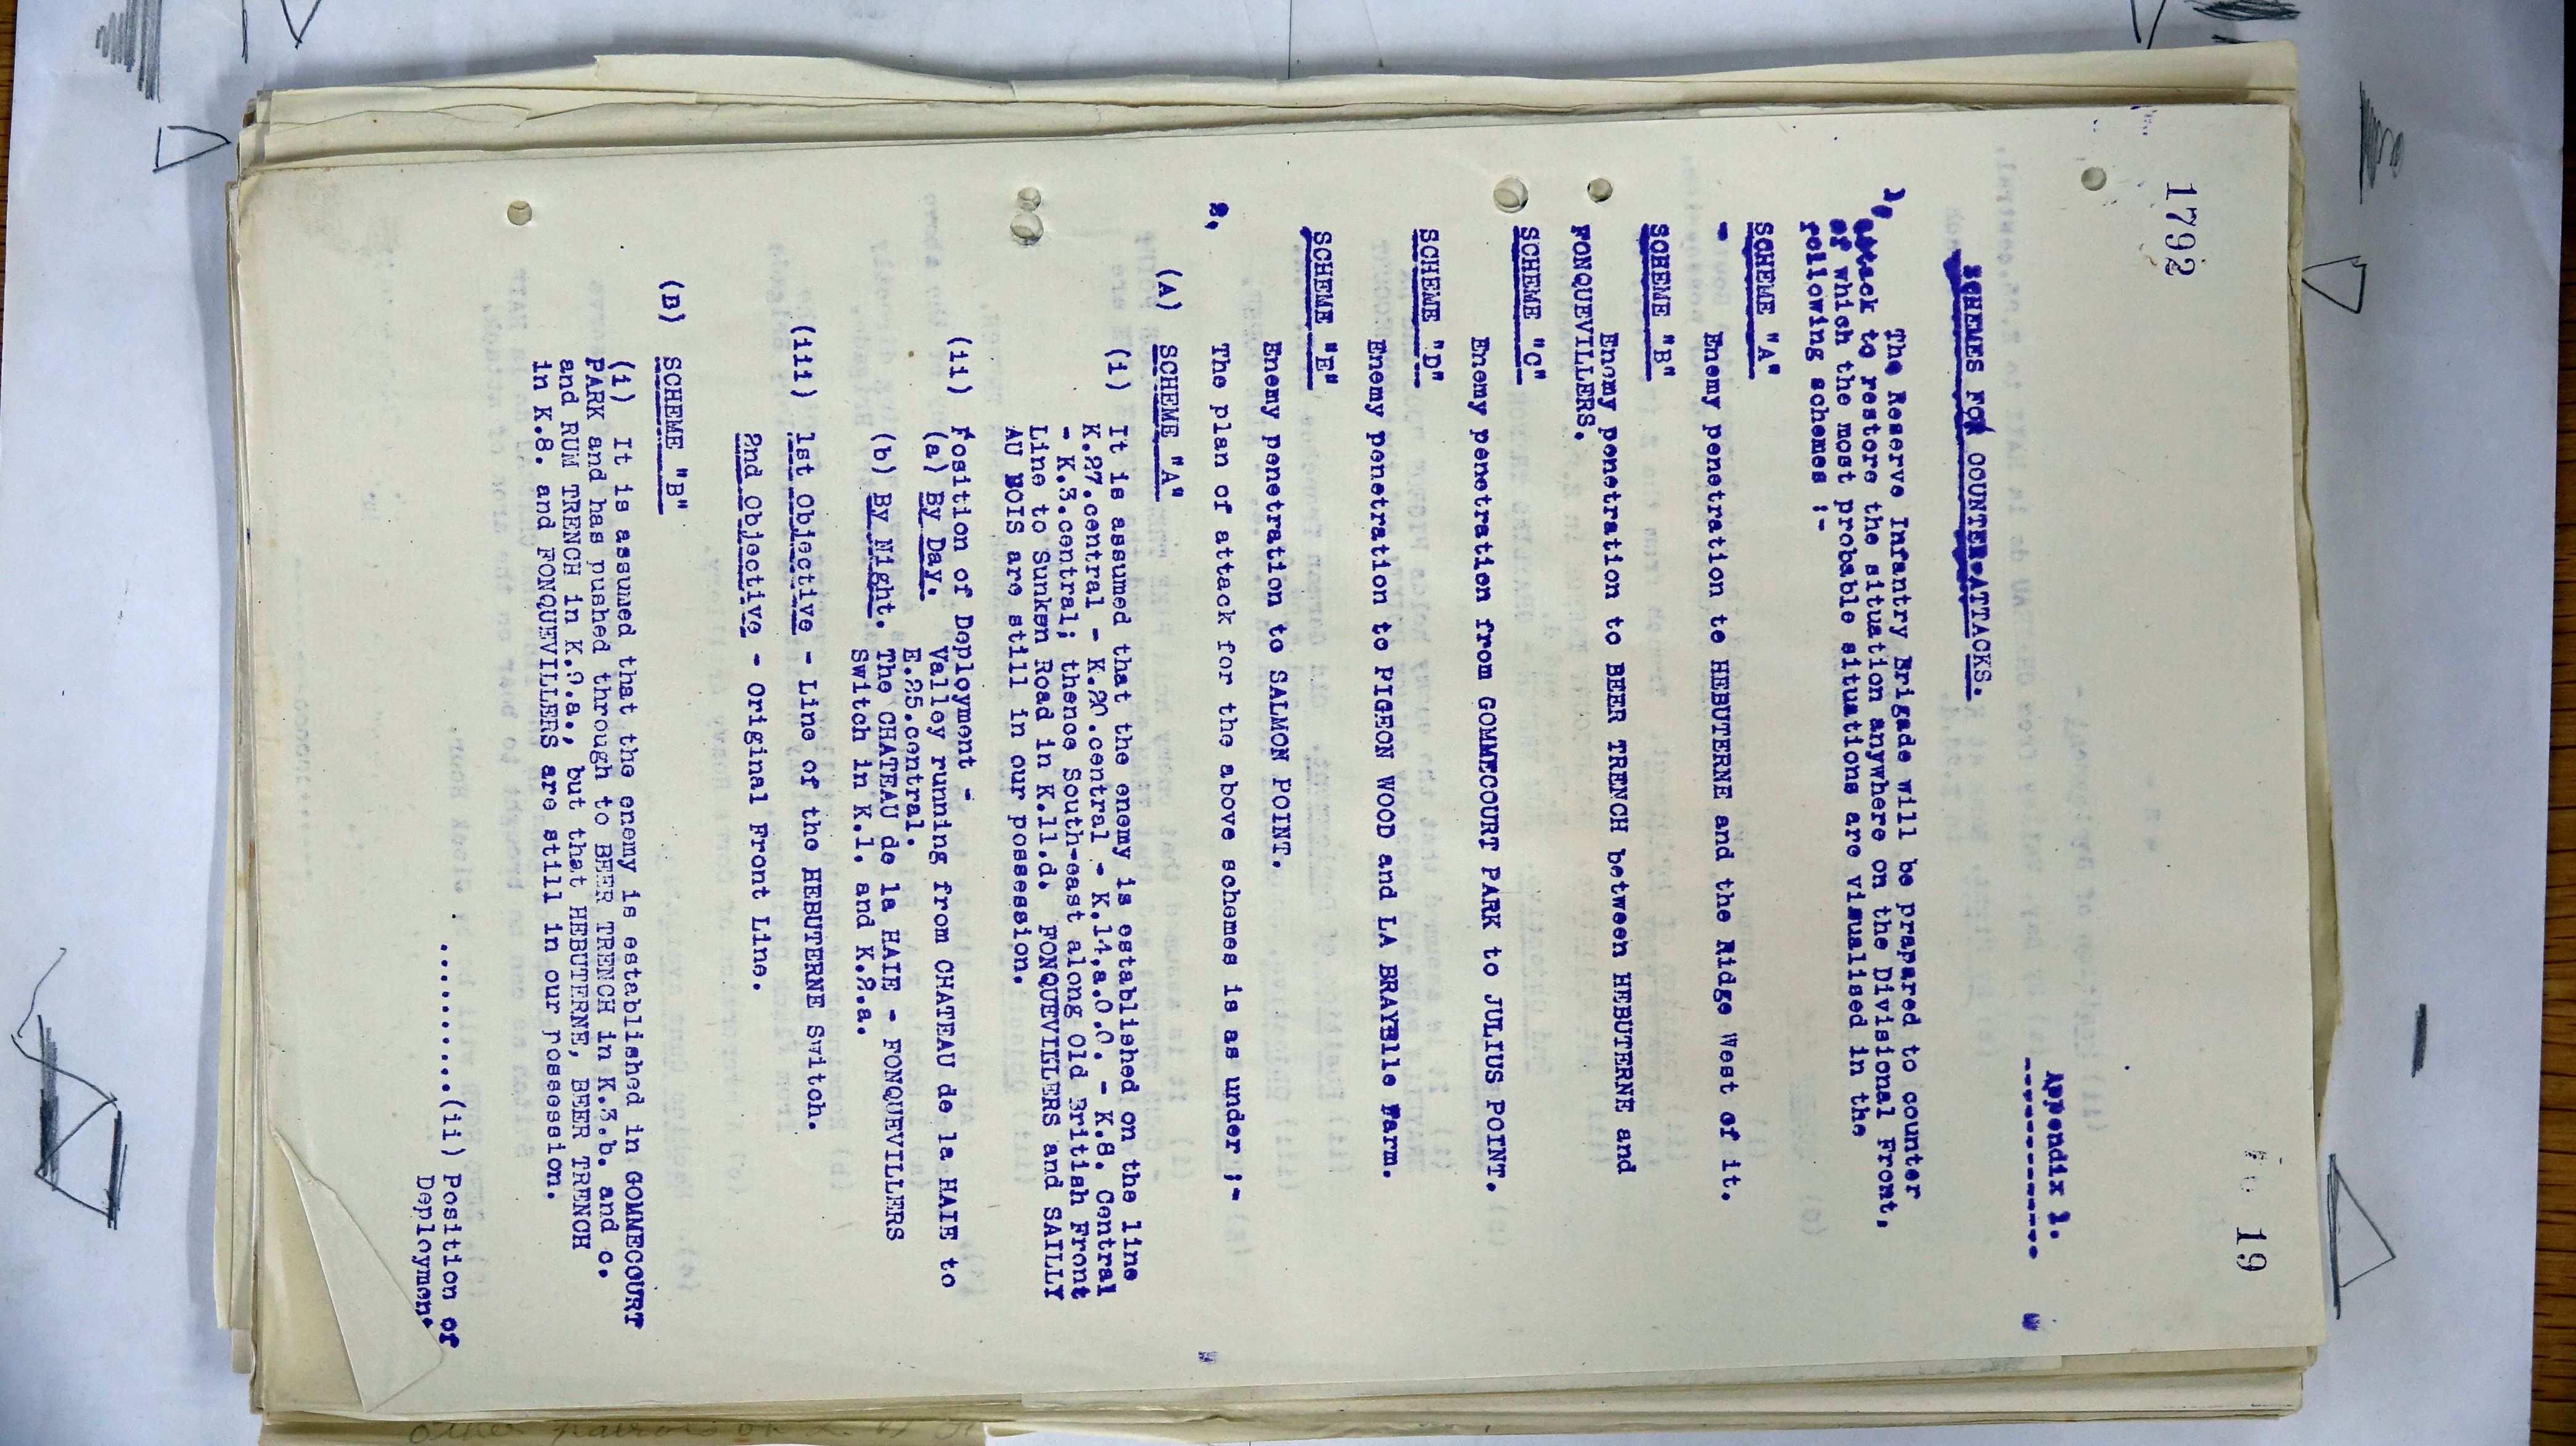 1792
19
Appendix 1.
SCHEMES FOR COUNTER-ATTACKS.
1. The Reserve Infantry Brigade will be prepared to counter
attack to restore the situation anywhere on the Divisional Front,
of which the most probable situations are visualised in the
following schemes :-
SCHEME "A"
- Enemy penetration to HEBUTERNE and the Ridge West of it.
SCHEME "B"
Enemy penetration to BEER TRENCH between HEBUTERNE and
FONQUEVILLERS.
SCHEME "C"
Enemy penetration from GOMMECOURT PARK to JULIUS POINT.
SCHEME "D"
Enemy penetration to PIGEON WOOD and LA BRAYELLE Farm.
SCHEME "E"
Enemy penetration to SALMON POINT.
2. The plan of attack for the above schemes is as under :-
(A) SCHEME "A"
(i) It is assumed that the enemy is established on the line
K.27.central - K.20.central - K.14.a.0.0. - K.8. Central
- K.3.central; thence South-east along Old British Front
Line to Sunken Road in K.11.d. FONQUEVILLERS and SAILLY
AU BOIS are still in our possession.
(ii) Position of Deployment -
(a) By Day. Valley running from CHATEAU de la HAIE to
E.25.central.
(b) By Night. The CHATEAU de la HAIE - FONQUEVILLERS
Switch in K.1. and K.2.a.
(iii) 1st Objective - Line of the HEBUTERNE Switch.
2nd Objective - Original Front Line.
(B) SCHEME "B"
(i) It is assumed that the enemy is established in GOMMECOURT
PARK and has pushed through to BEER TRENCH in K.3.b. and c.
and RUM TRENCH in K.9.a., but that HEBUTERNE, BEER TRENCH
in K.8. and FONQUEVILLERS are still in our possession.
..........(ii) Position of
Deployment.
other patrols on